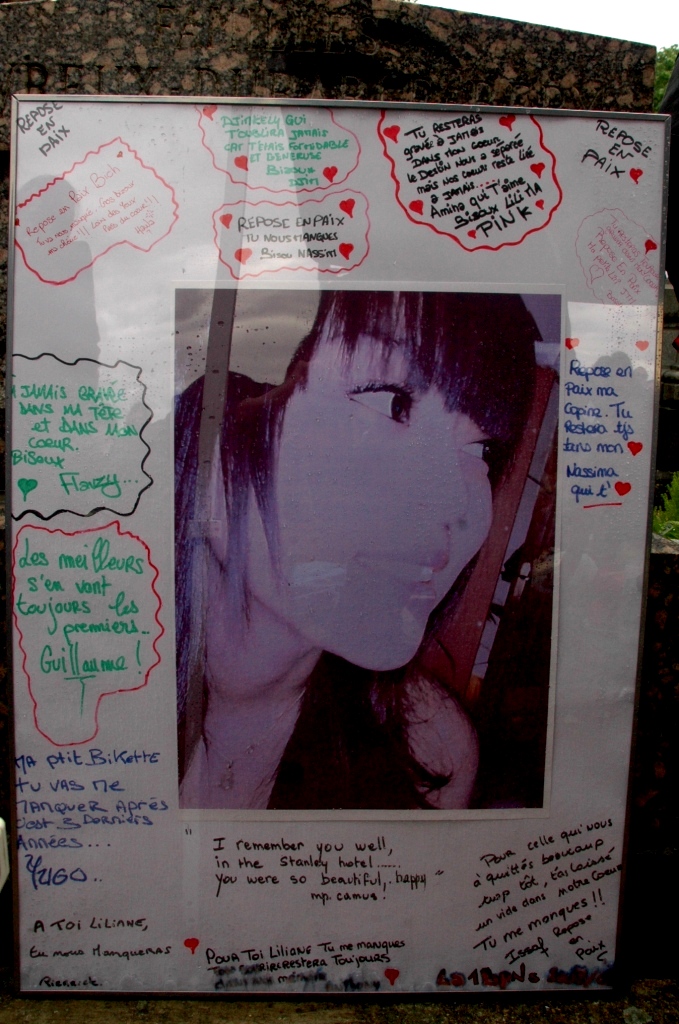 REPOSE
EN
PAIX
DJINKELY QUI
T'OUBLIRA JAMAIS
CAR T'ETAIS FORMIDABLE
ET GENEREUSE
Bisoux
DJIM
TU RESTERAS
GRAVÉE À JAMAIS
DANS MON COEUR,
LE DESTIN NOUS A SÉPARÉE
MAIS NOS COEUR RESTE LIÉ
À JAMAIS....
Amina qui T'aime
Bisoux LILI MA
PINK
REPOSE
EN
PAIX
Repose en Paix Bich
REPOSE EN PAIX
TU NOUS MANQUES
Bisou NASSIM
Repose en Paix
JAMAIS GRAVÉE
DANS MA TÊTE
ET DANS MON
COEUR.
BISOUX
Flavzy...
Repose en
Paix ma
Copine. Tu
Restera tjs
dans mon
Nassima
qui t'
Les meilleurs
s'en vont
toujours les
premiers..
Guillaume !
MA PTIT BIKETTE
TU VAS ME
MANQUER APRÈS
C'EST 3 DERNIÈRS
ANNÉES....
YUGO..
" I remember you well,
in the Stanley hotel......
you were so beautiful,.. happy "
mp. camus.
POUR CELLE QUI NOUS
À QUITTÉS BEAUCOUP
TROP TÔT, T'AS LAISSÉ
UN VIDE DANS NOTRE COEUR
TU ME MANQUES !!
ISSAF REPOSE
EN
PAIX
A TOI LILIANE,
tu nous MANQUERAS
POUR TOI LILIANE TU ME MANQUES
RESTERA TOUJOURS